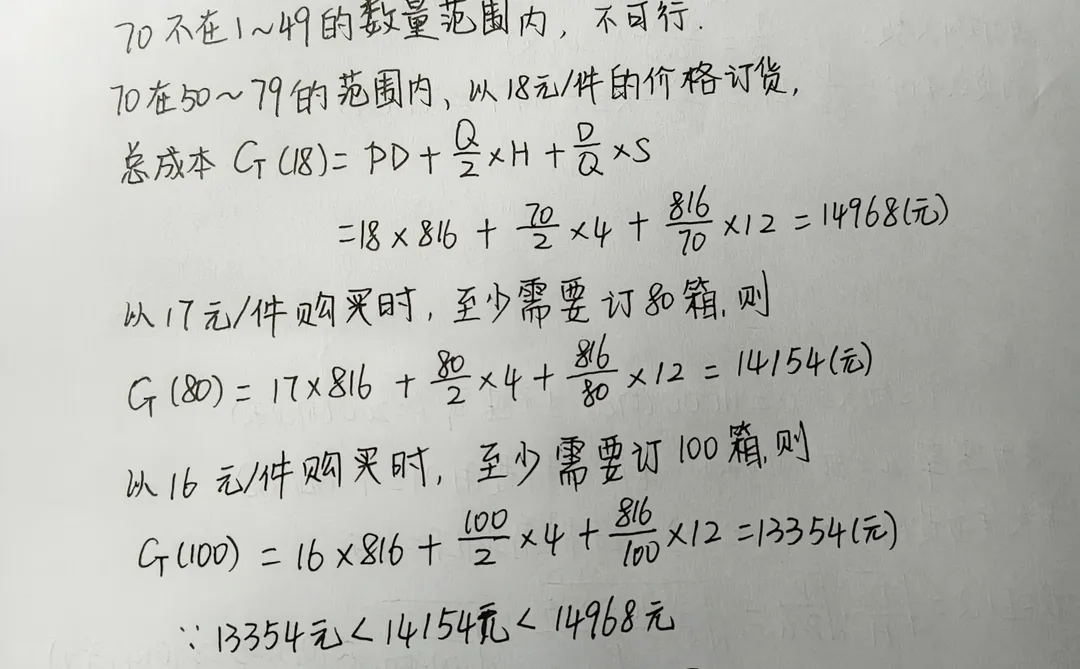 70不在1~49的数量范围内，不可行.
70在50~79的范围内、以18元/件的价格订货,
总成本 G(18)= PD + Q/2 × H + D/Q × S
=18 × 816 + 70/2 × 4 + 816/70 × 12 = 14968(元)
以17元/件购买时，至少需要订80箱,则
G(80) = 17×816 + 80/2 × 4 + 816/80 × 12 = 14154(元)
以16元/件购买时，至少需要订100箱,则
G(100) = 16 × 816 + 100/2 × 4 + 816/100 × 12 = 13354(元)
∵ 13354元 < 14154元 < 14968元